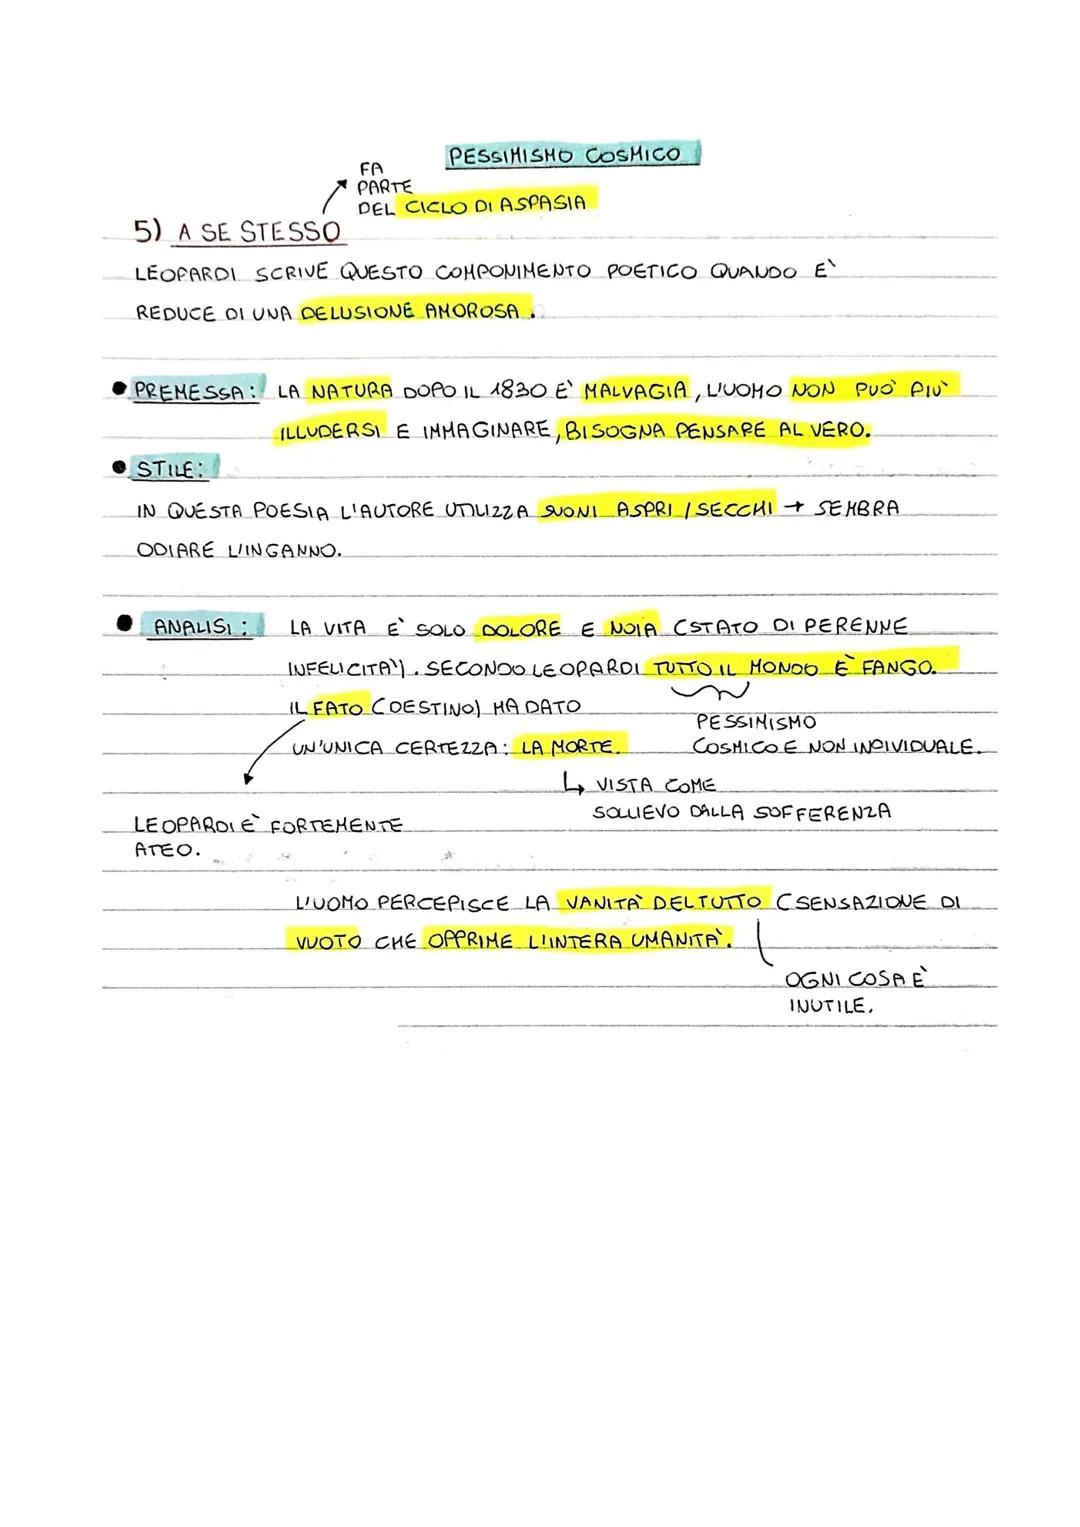 PESSIMISMO COSMICO
FA
PARTE
DEL CICLO DI ASPASIA
5) A SE STESSO
LEOPARDI SCRIVE QUESTO COMPONIMENTO POETICO QUANDO E'
REDUCE DI UNA DELUSIONE AMOROSA.
• PREMESSA: LA NATURA DOPO IL 1830 E' MALVAGIA, L'UOMO NON PUO' PIU'
ILLUDERSI E IMMAGINARE, BISOGNA PENSARE AL VERO.
• STILE:
IN QUESTA POESIA L'AUTORE UTILIZZA SUONI ASPRI / SECCHI → SEMBRA
ODIARE L'INGANNO.
• ANALISI: LA VITA E' SOLO DOLORE E NOIA (STATO DI PERENNE
INFELICITA'). SECONDO LEOPARDI TUTTO IL MONDO E' FANGO.
IL FATO (DESTINO) HA DATO
PESSIMISMO
UN'UNICA CERTEZZA: LA MORTE.
COSMICO E NON INDIVIDUALE.
↳ VISTA COME
SOLLIEVO DALLA SOFFERENZA
LEOPARDI E' FORTEMENTE
ATEO.
L'UOMO PERCEPISCE LA VANITA' DEL TUTTO (SENSAZIONE DI
VUOTO CHE OPPRIME L'INTERA UMANITA'.
OGNI COSA E'
INUTILE.